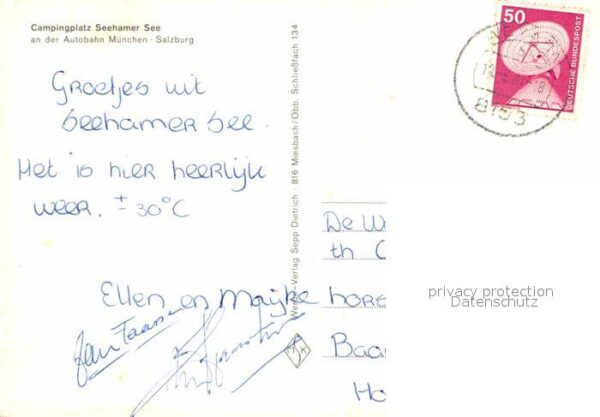 Campingplatz Seehamer See
an der Autobahn München - Salzburg
Groetjes uit
Seehamer See.
Het is hier heerlijk
weer. ± 30°C
Ellen en Maijke
Weber-Verlag Sepp Dietrich - 816 Miesbach/Obb. Schließfach 134
50
DEUTSCHE BUNDESPOST
8153
De
th
Baa
Ho
privacy protection
Datenschutz